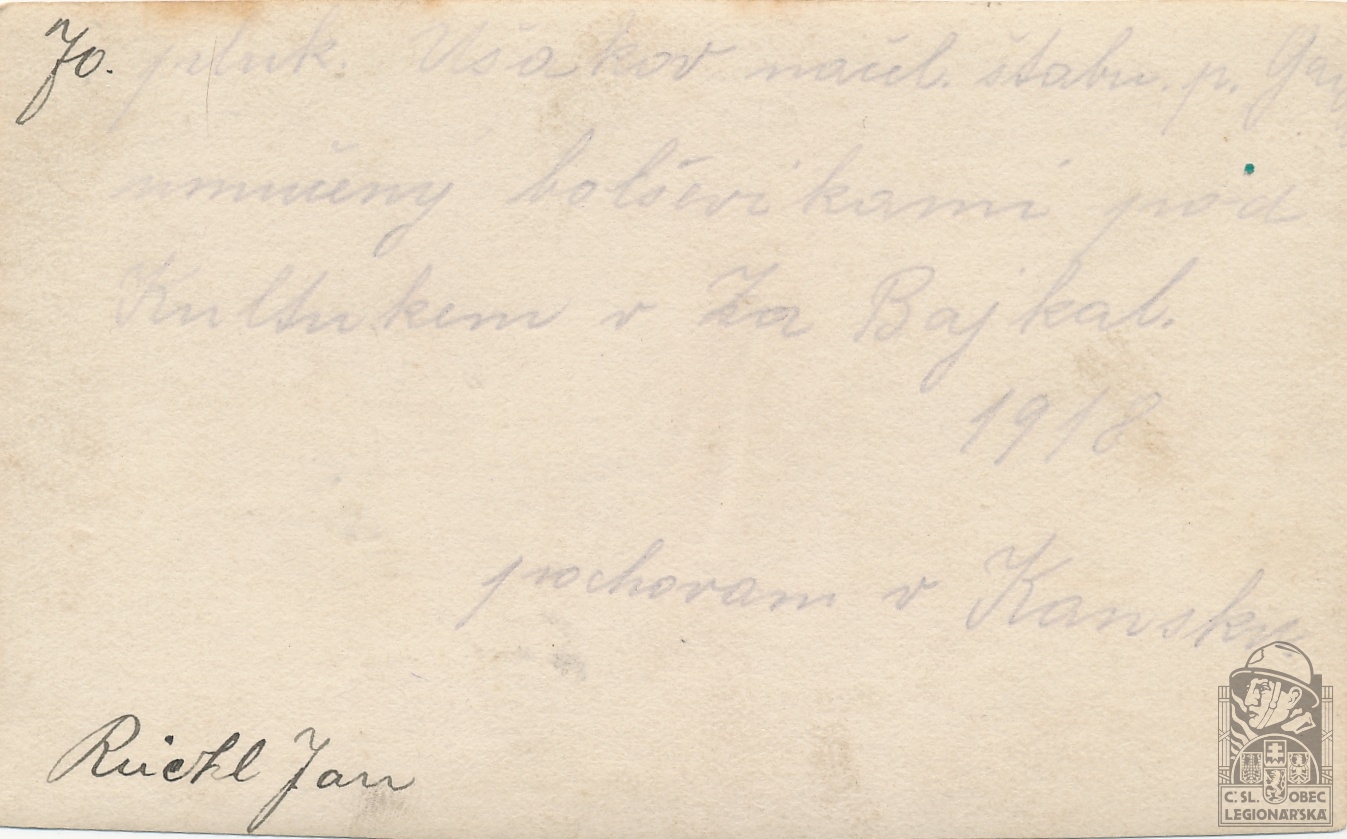 70. pluk. Ušakov náčel. štabu. p. Gaj
umučený bolševikami pod
Kultukem v Za Bajkal.
1918
pochovam v Kansku
Ruichl Jan
Č.SL. OBEC
LEGIONÁŘSKÁ